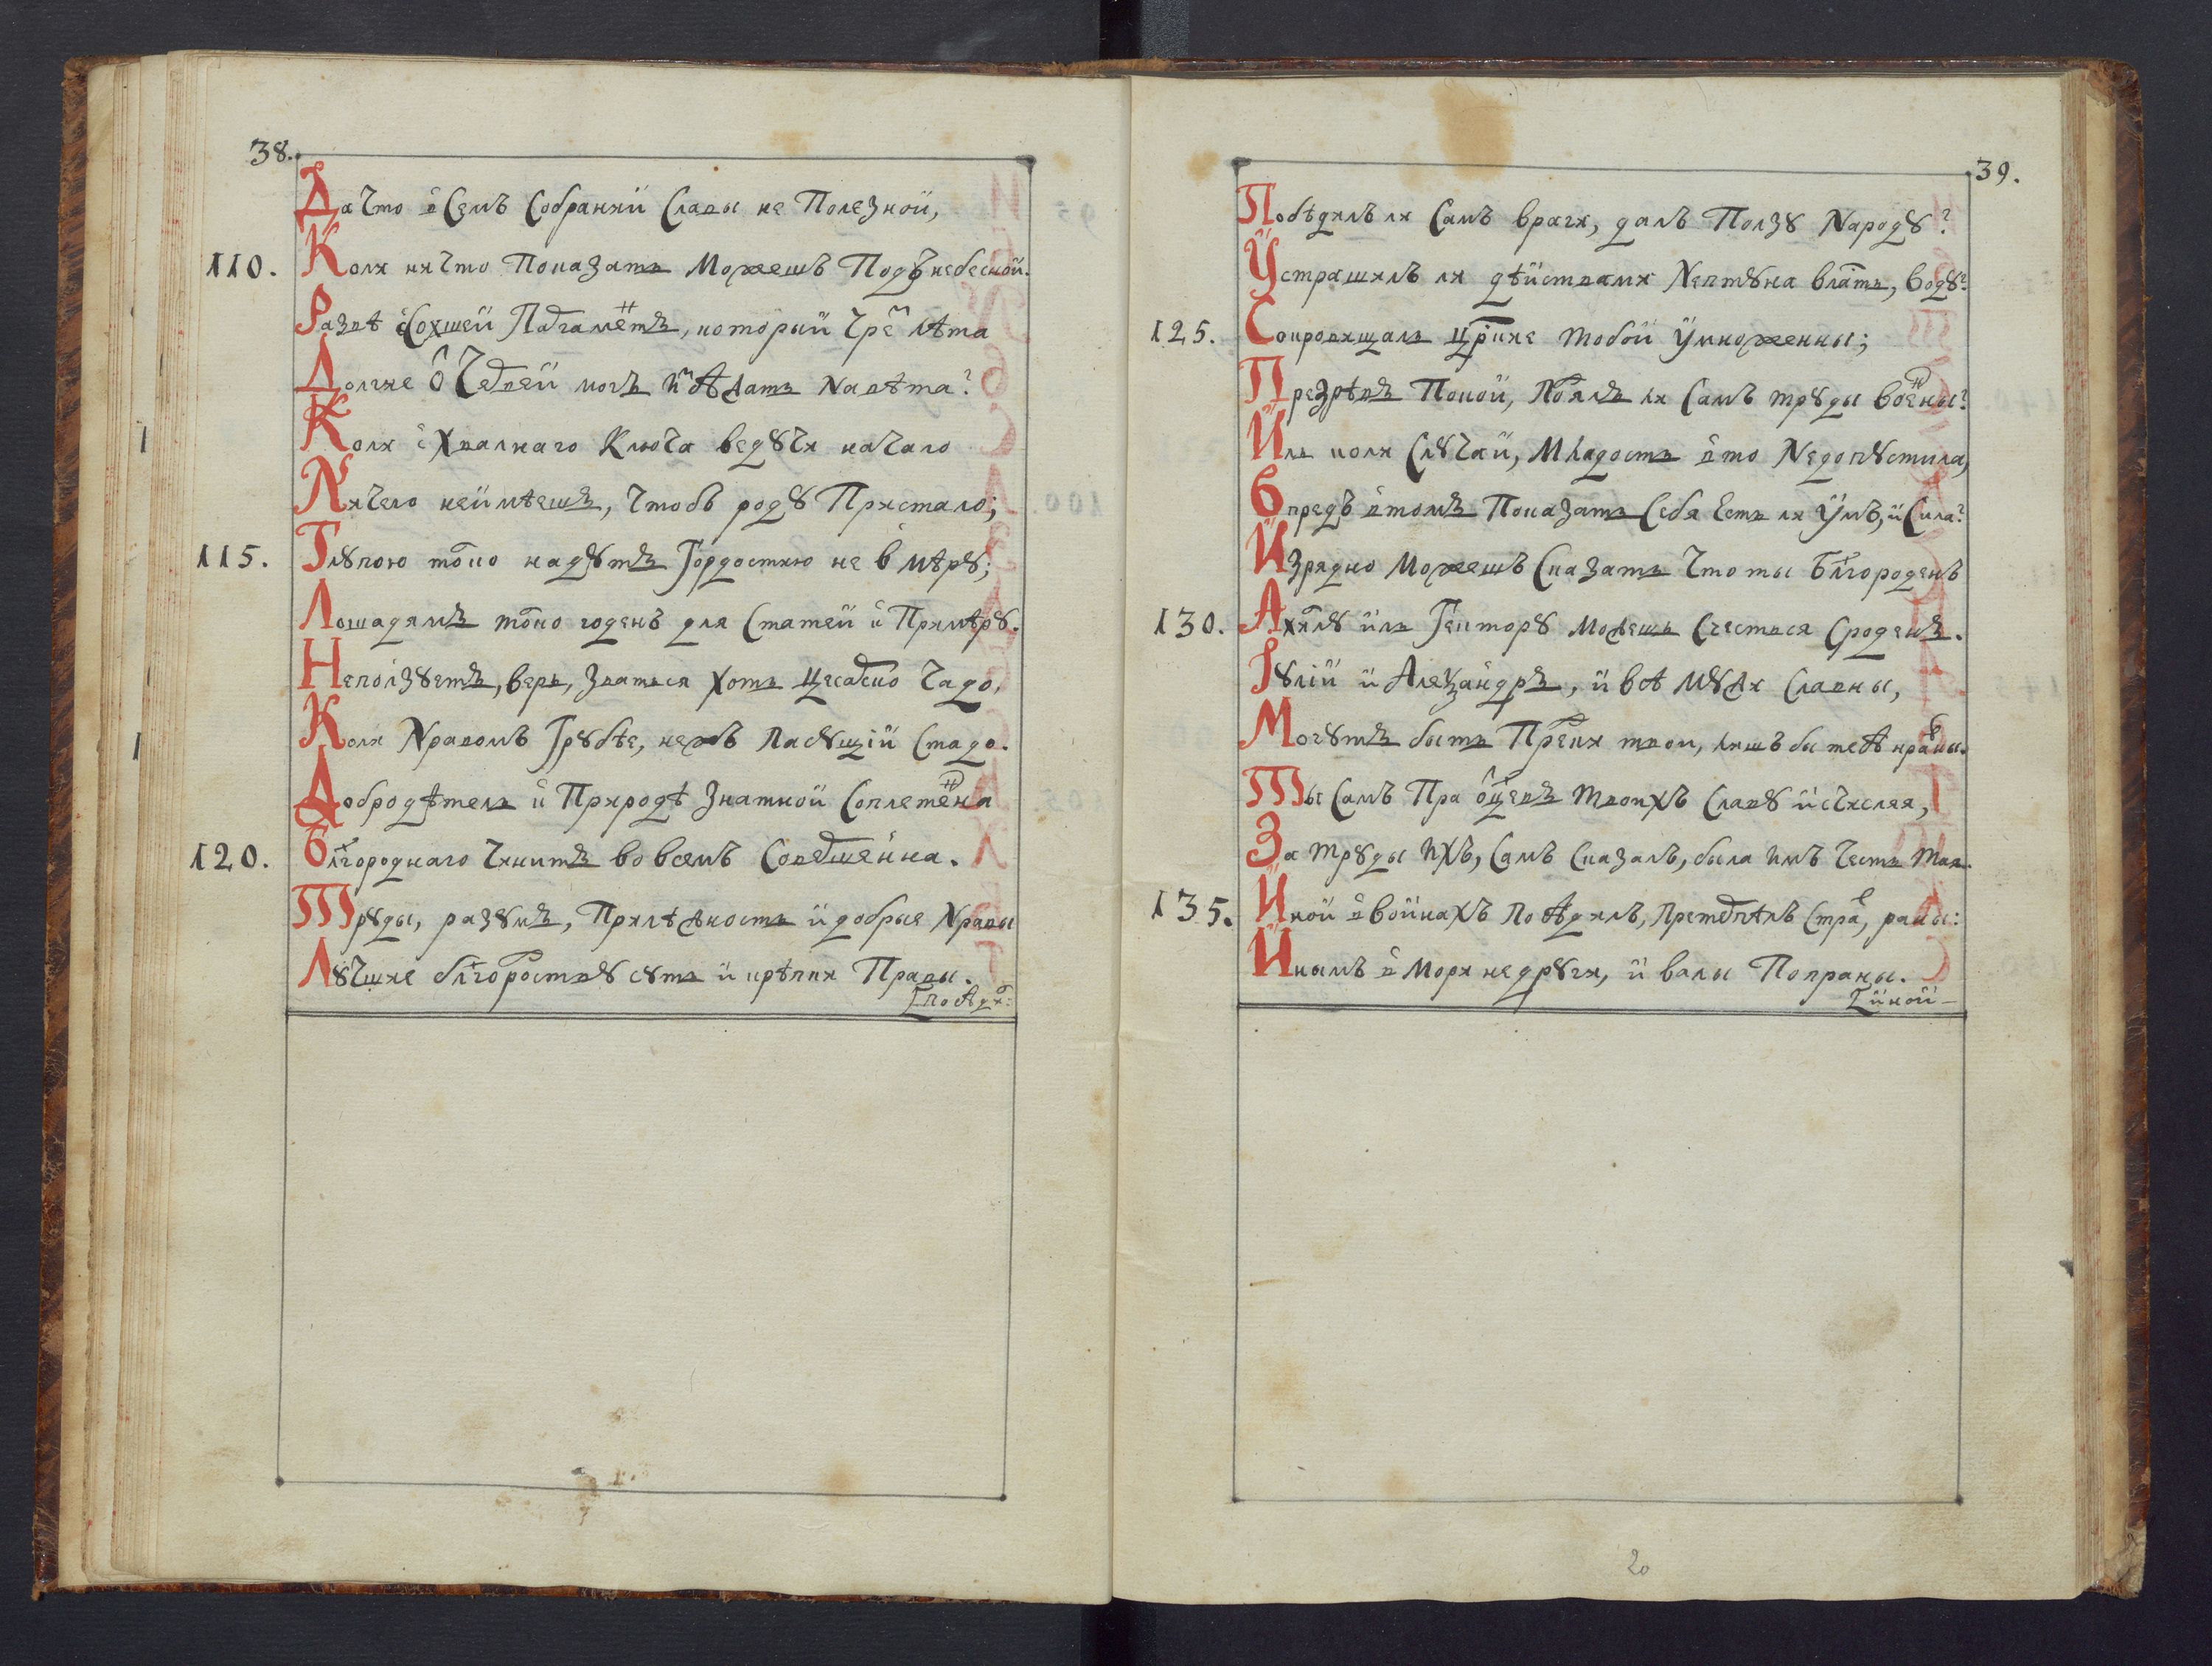 38.
Да что в Семъ Собраниї Славы не Полезноӥ,
110. Коли ничто Показать Можешъ Подъ небесноӥ.
Развѣ ѝсохшеӥ Паргаментъ, которыӥ чрез лѣта
Долгие ѿ Червеӥ могъ изѣѣдать Навѣта?
Коли ѝ хвалнаго Ключа ведꙋчи начало
Ничего неимѣешъ, чтобъ родꙋ Пристало;
115. Глꙋпою токмо надꙋтъ Гордостию не в мѣрꙋ;
Лошадямъ токмо годенъ для Статеӥ ѝ Примѣрꙋ.
Неползꙋетъ, верь, зваться хоть цесарско чадо,
Коли Нравомъ Грꙋбѣе, нежъ Пасꙋщіӥ Стадо.
Добродѣтель ѝ Природѣ знатноӥ Соплетенна
120. Блгороднаго чинитъ во всемъ Совершенна.
Трꙋды, разꙋмъ, Прилѣжность ӥ добрые Нравы
Лꙋчшие блгородствꙋ сꙋть ӥ крѣпки Правы.
[победи:
39.
Побѣдилъ ли Самъ враги, далъ Ползꙋ Народꙋ?
Ӱстрашилъ ли дѣӥствами Нептꙋна власть, водꙋ?
125. Сокровища ль црские тобоӥ ӱмноженны;
Презрѣвъ Покоӥ, Поялъ ли Самъ трꙋды военны?
Ӥль коли Слꙋчаӥ, Младость в то Недопꙋстила,
Впредъ в томъ Показать Себя Есть ли ӱмъ, ӥ Сила?
Ӥзрядно Можешъ Сказать что ты Блгороденъ
130. Ахилꙋ ӥль Гекторꙋ можешь Счесться Сроденъ.
Іꙋліӥ ӥ Алеѯандръ, ӥ всѣ мꙋжи Славны,
Могꙋтъ быть Предки твои, лишъ бы тебѣ нравны.
Ты Самъ Пра ѿцевъ твоихъ Славꙋ ӥсчисляя,
За трꙋды ихъ, Самъ Сказалъ, была имъ честь тая.
135. Ӥноӥ в воӥнахъ побѣдилъ, претерпѣлъ Страх, раны:
Ӥнымъ в Мори недрꙋги, ӥ валы Попраны.
[ӥноӥ -
20